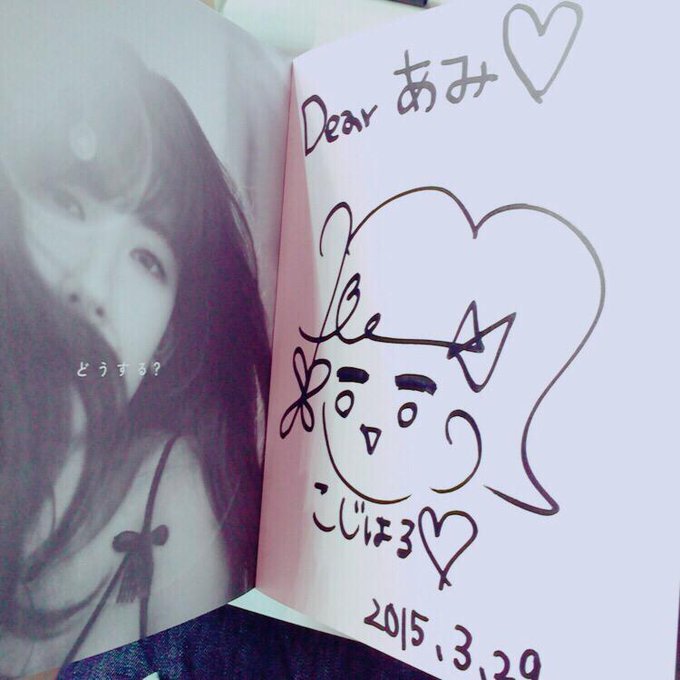 どうする?
Dear あみ♡
こじはる♡
2015.3.29